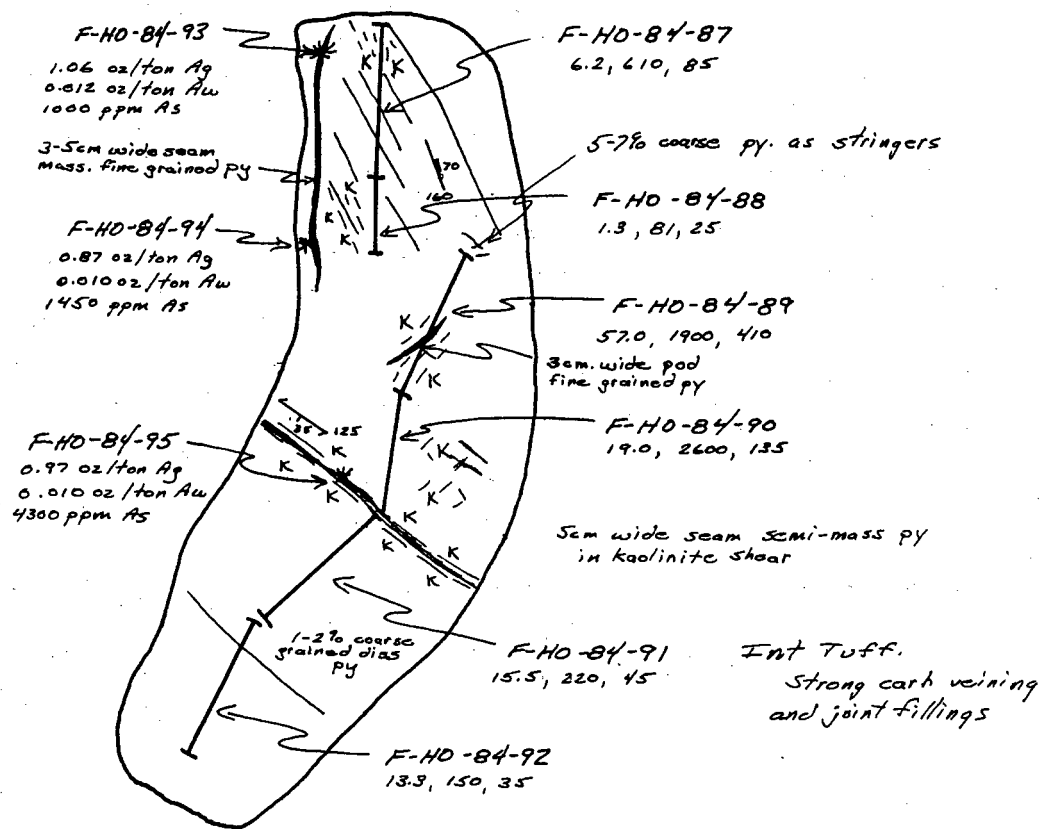 F-HO-84-93
1.06 oz/ton Ag
0.012 oz/ton Au
1000 ppm As
3-5cm wide seam
mass. fine grained py
F-HO-84-94
0.87 oz/ton Ag
0.010 oz/ton Au
1450 ppm As
F-HO-84-95
0.97 oz/ton Ag
0.010 oz/ton Au
4300 ppm As
K K K
70
160
K
K K
K
K
35 125
K
K
K
K
K
K
K
K
K
F-HO-84-87
6.2, 610, 85
5-7% coarse py. as stringers
F-HO-84-88
1.3, 81, 25
F-HO-84-89
57.0, 1900, 410
3cm. wide pod
fine grained py
F-HO-84-90
19.0, 2600, 135
5cm wide seam semi-mass py
in kaolinite shear
1-2% coarse
grained diss
py
F-HO-84-91
15.5, 220, 45
Int Tuff.
Strong carb veining
and joint fillings
F-HO-84-92
13.3, 150, 35